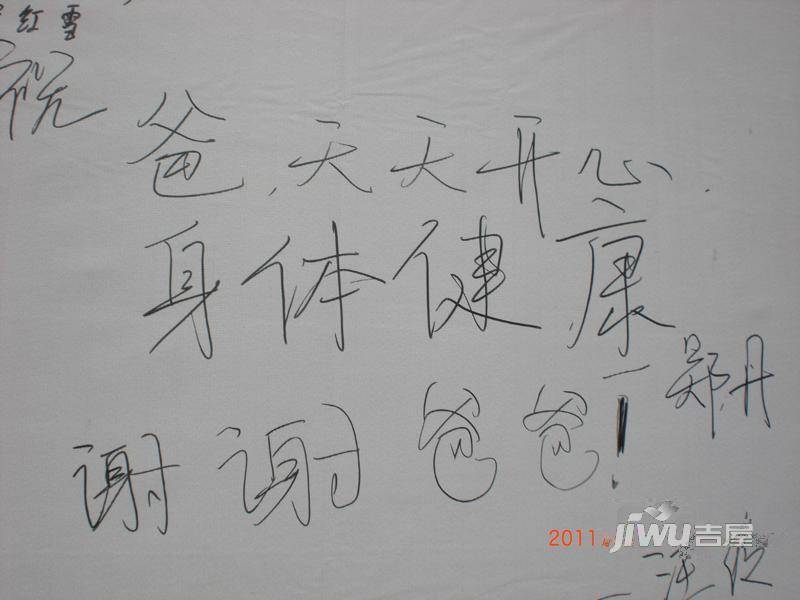 红雪
祝
爸、天天开心.
身体健康
谢谢爸爸!
—郑丹
2011
JIWU吉屋